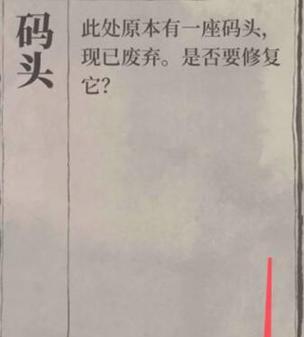 码头
此处原本有一座码头，
现已废弃。是否要修复
它？